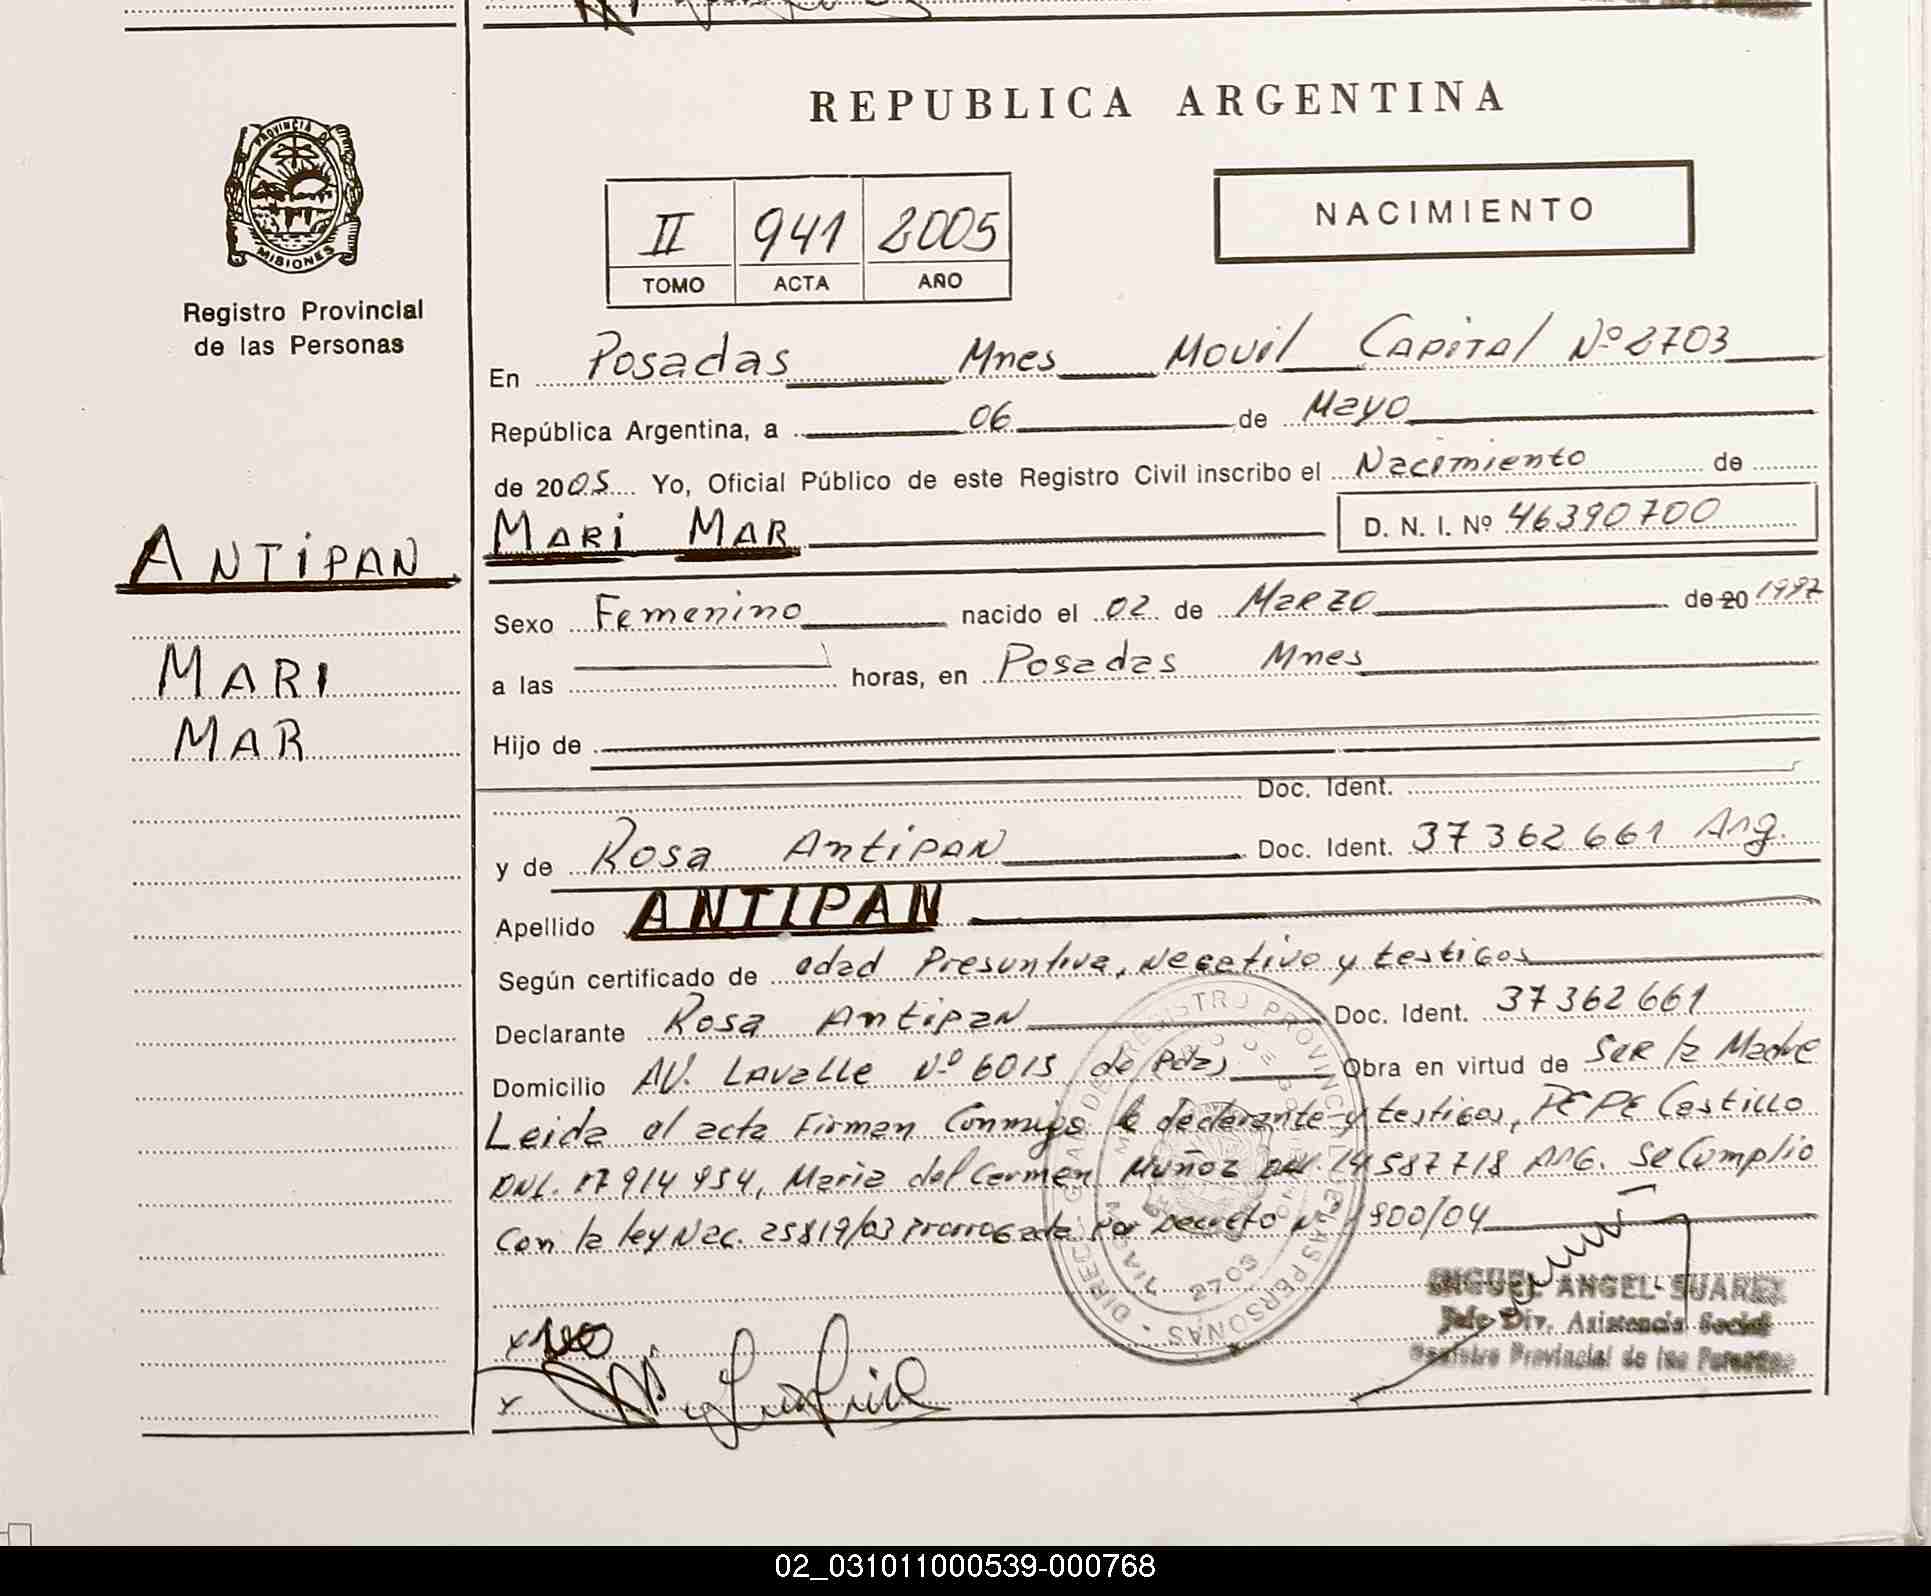 REPUBLICA ARGENTINA
PROVINCIA DE
MISIONES
Registro Provincial
de las Personas
II 941 2005
TOMO ACTA AÑO
NACIMIENTO
En Posadas Mnes Movil Capital Nº 2703
República Argentina, a 06 de Mayo
de 2005 Yo, Oficial Público de este Registro Civil inscribo el Nacimiento de
ANTIPAN
MARI MAR D. N. I. Nº 46390700
Sexo Femenino nacido el 02 de Marzo de 20 1997
MARI
a las horas, en Posadas Mnes
MAR
Hijo de
Doc. Ident.
y de Rosa Antipan Doc. Ident. 37362661 Arg.
Apellido ANTIPAN
Según certificado de edad Presuntiva, Negativo y testigos
Declarante Rosa Antipan Doc. Ident. 37362661
Domicilio AV. Lavalle Nº 6015 de Pdas Obra en virtud de Ser la Madre
Leida el acta Firman Conmigo la declarante y testigos, PEPE Castillo
DNI. 17914954, Maria del Carmen Muñoz DNI. 14587718 ARG. Se Cumplio
Con la ley Nac. 25819/03 Prorrogada Por Decreto Nº 1900/04
2703
MIGUEL ANGEL SUAREZ
Jefe Div. Asistencia Social
Registro Provincial de las Personas
02_031011000539-000768